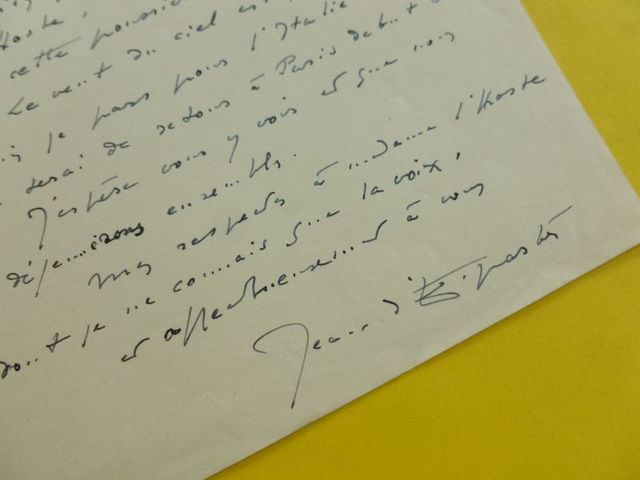 Hoste,
cette poussière
Le vent du ciel es
je pars pour l'Italie
serai de retour à Paris début
J'espère vous y voir et que nous
déjeunerons ensemble.
Mes respects à madame l'Hoste
dont je ne connais que la voix,
et affectueusement à vous
Jean d'Esparbès